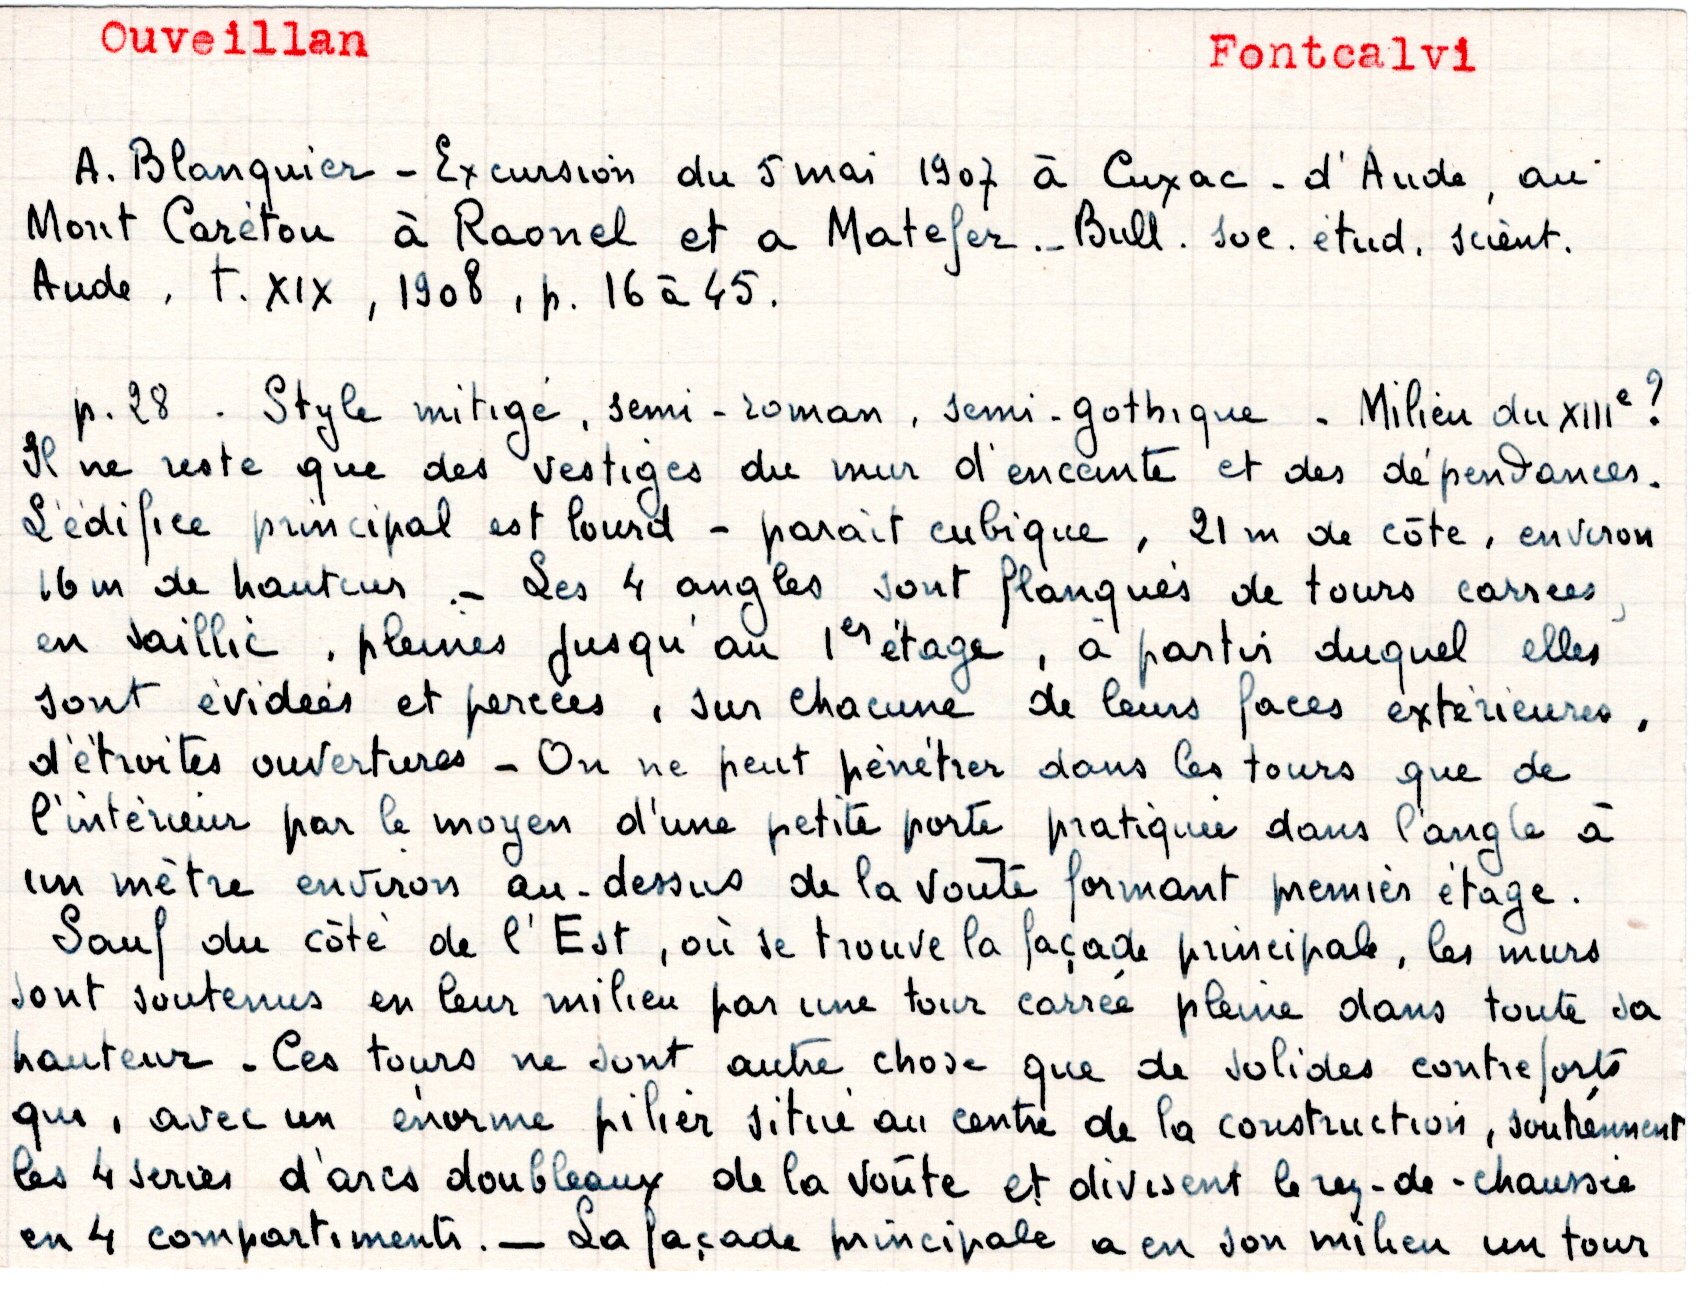 Ouveillan
Fontcalvi
A. Blanquier - Excursion du 5 mai 1907 à Cuxac - d'Aude, au
Mont Carétou à Raonel et a Matefer. - Bull. soc. étud. scient.
Aude, t. XIX, 1908, p. 16 à 45.
p. 28 . Style mitigé, semi-roman, semi-gothique . Milieu du XIIIe ?
Il ne reste que des vestiges du mur d'enceinte et des dépendances.
L'édifice principal est lourd - parait cubique, 21 m de côte, environ
16 m de hauteur . - Les 4 angles sont flanqués de tours carrees,
en saillie, pleines jusqu'au 1er étage, à partir duquel elles
sont évideés et percées, sur chacune de leurs faces extérieures,
d'étroites ouvertures - On ne peut pénétrer dans les tours que de
l'intérieur par le moyen d'une petite porte pratiquée dans l'angle à
un mètre environ au-dessus de la voute formant premier étage.
Sauf du côté de l'Est, où se trouve la façade principale, les murs
sont soutenus en leur milieu par une tour carrée pleine dans toute sa
hauteur - Ces tours ne sont autre chose que de solides contreforts
qui, avec un énorme pilier situé au centre de la construction, soutiennent
les 4 series d'arcs doubleaux de la voûte et divisent le rez-de-chaussée
en 4 compartiments. - La façade principale a en son milieu un tour